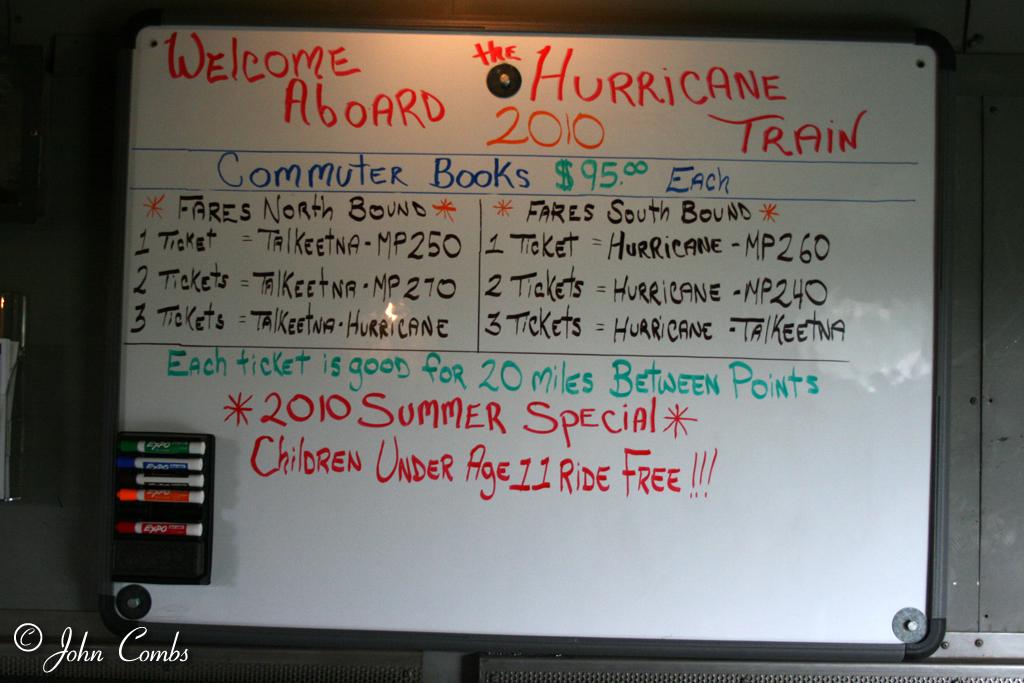 WELCOME ABOARD the HURRICANE TRAIN
2010
COMMUTER BOOKS $95.00 EACH
* FARES NORTH BOUND *
1 TICKET = TALKEETNA-MP250
2 TICKETS = TALKEETNA-MP270
3 TICKETS = TALKEETNA-HURRICANE
* FARES SOUTH BOUND *
1 TICKET = HURRICANE-MP260
2 TICKETS = HURRICANE-MP240
3 TICKETS = HURRICANE-TALKEETNA
EACH TICKET IS GOOD FOR 20 MILES BETWEEN POINTS
* 2010 SUMMER SPECIAL *
CHILDREN UNDER AGE 11 RIDE FREE!!!
EXPO
EXPO
EXPO
EXPO
© John Combs